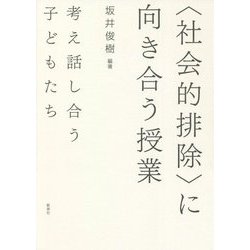 〈社会的排除〉に
向き合う授業
坂井俊樹 編著
考え話し合う
子どもたち